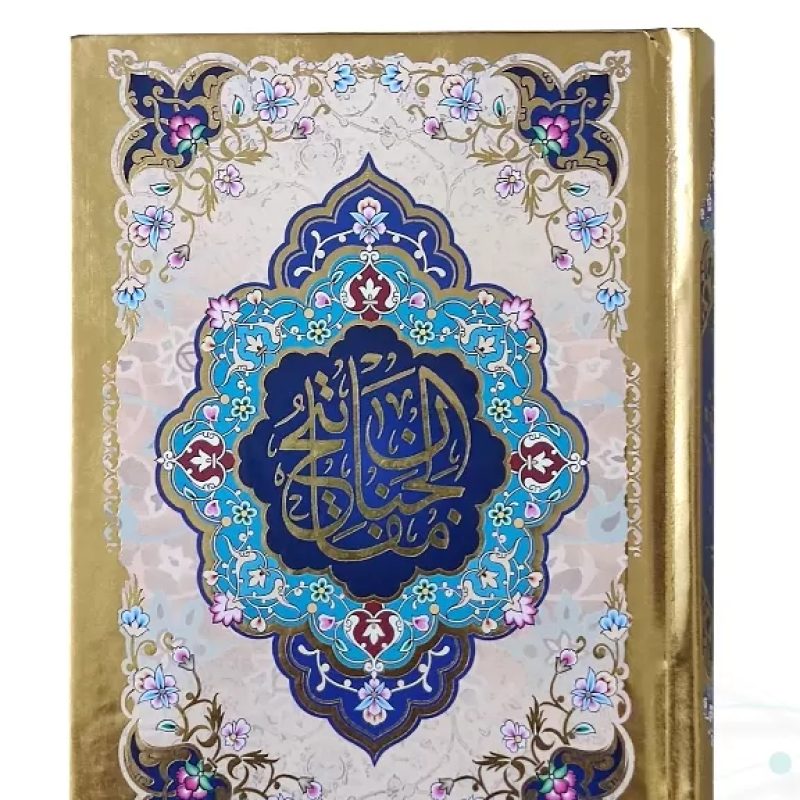 مفاتيح الجنان